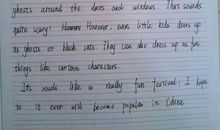 ghosts around the doors and windows. That sounds
quite scary! However However, even little kids dress up
as ghosts or black cats. They can also dress up as fun
things like cartoon characters.
It's sounds like a really fun festival! I hope
to it ever will become popular in China.